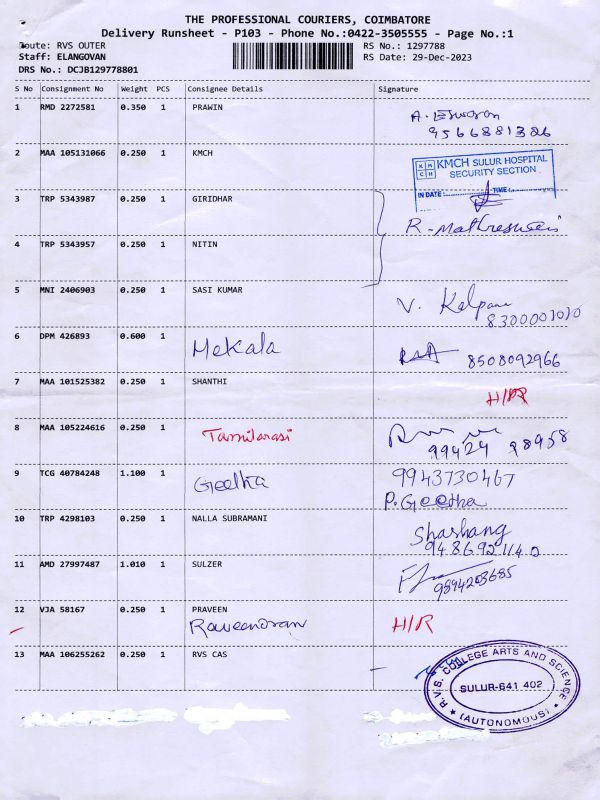 THE PROFESSIONAL COURIERS, COIMBATORE
Delivery Runsheet - P103 - Phone No.:0422-3505555 - Page No.:1
Route: RVS OUTER RS No.: 1297788
Staff: ELANGOVAN RS Date: 29-Dec-2023
DRS No.: DCJB129778801
S No Consignment No Weight PCS Consignee Details Signature
1 RMD 2272581 0.350 1 PRAWIN
A. Eswaran
9566881326
2 MAA 105131066 0.250 1 KMCH
KMCH KMCH SULUR HOSPITAL
SECURITY SECTION
IN DATE: TIME:
3 TRP 5343987 0.250 1 GIRIDHAR
R-
4 TRP 5343957 0.250 1 NITIN
5 MNI 2406903 0.250 1 SASI KUMAR
V. Kalpana
8300001010
6 DPM 426893 0.600 1
Mekala 8508092966
7 MAA 101525382 0.250 1 SHANTHI
H/R
8 MAA 105224616 0.250 1
Tamilarasi
99424 98958
9 TCG 40784248 1.100 1 9943730467
Geetha
P. Geetha
10 TRP 4298103 0.250 1 NALLA SUBRAMANI
Shashang
9486921140
11 AMD 27997487 1.010 1 SULZER
9894203685
12 VJA 58167 0.250 1 PRAVEEN
Raveendran H/R
13 MAA 106255262 0.250 1 RVS CAS
R.V.S. COLLEGE ARTS AND SCIENCE
SULUR-641 402
(AUTONOMOUS)